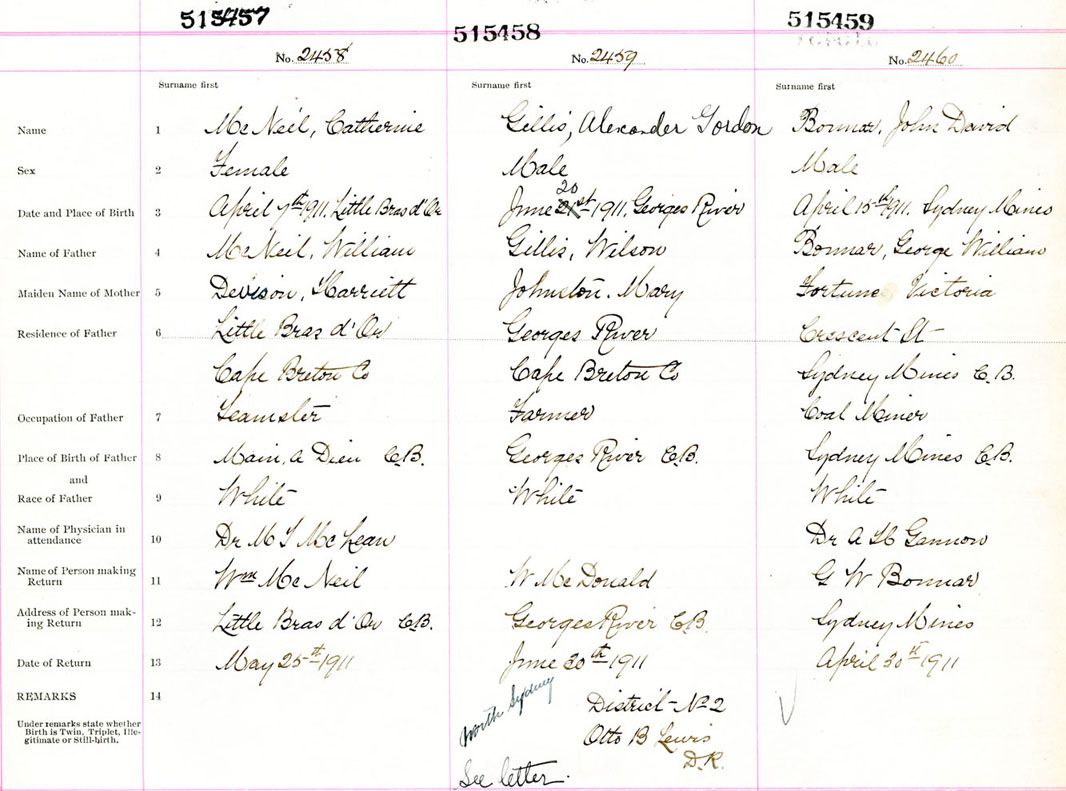 515457 515458 515459
No. 2458 No. 2459 No. 2460
Surname first Surname first Surname first
Name 1 McNeil, Catherine Gillis, Alexander Gordon Bonnar, John David
Sex 2 Female Male Male
20
Date and Place of Birth 3 April 7th 1911. Little Bras d'Or June 21st 1911. Georges River April 15th 1911. Sydney Mines
Name of Father 4 McNeil, William Gillis, Wilson Bonnar, George William
Maiden Name of Mother 5 Devison, Harriett Johnston. Mary Fortune Victoria
Residence of Father 6 Little Bras d'Or Georges River Crescent St
Cape Breton Co Cape Breton Co Sydney Mines C.B.
Occupation of Father 7 Teamster Farmer Coal Miner
Place of Birth of Father 8 Main, a Dieu C.B. Georges River C.B. Sydney Mines C.B.
and
Race of Father 9 White White White
Name of Physician in
attendance 10 Dr M McLean Dr A Gannon
Name of Person making
Return 11 Wm McNeil W McDonald G W Bonnar
Address of Person mak-
ing Return 12 Little Bras d'Or C.B. Georges River C.B. Sydney Mines
Date of Return 13 May 25th 1911 June 30th 1911 April 30th 1911
REMARKS 14 North Sydney District No 2
Under remarks state whether
Birth is Twin, Triplet, Ille-
gitimate or Still-birth.
Otto B Lewis
D.R.
See letter.